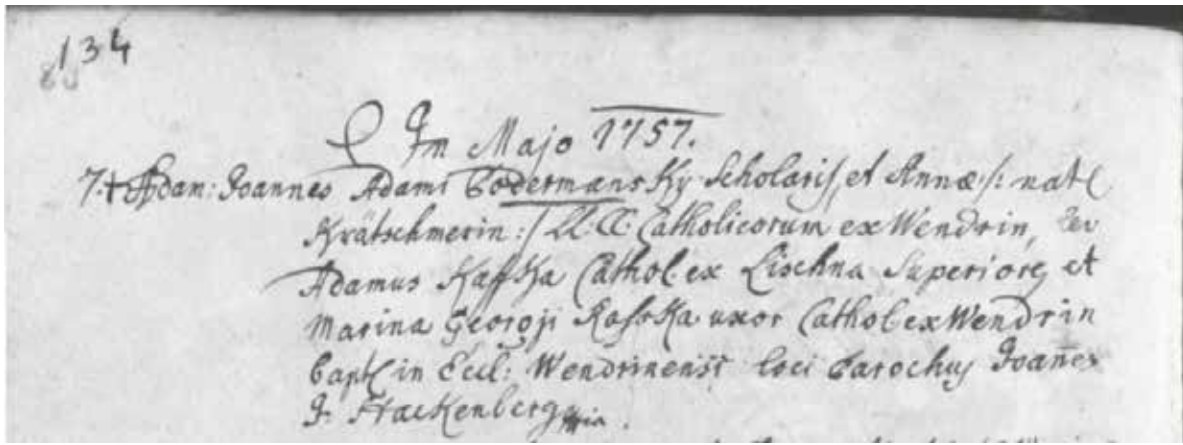 134
In Majo 1757.
7. + Adam: Joannes Adami Podermansky Scholaris, et Annæ /: nat
Krätschmerin :/ Catholicorum ex Wendrin,
Adamus Kaffka Cathol. ex Lischna Superiore, et
Marina Georgji uxor Cathol ex Wendrin
bapt in Eccl: Wendrinensi loci Parochus Joanes
J. Hackenberg